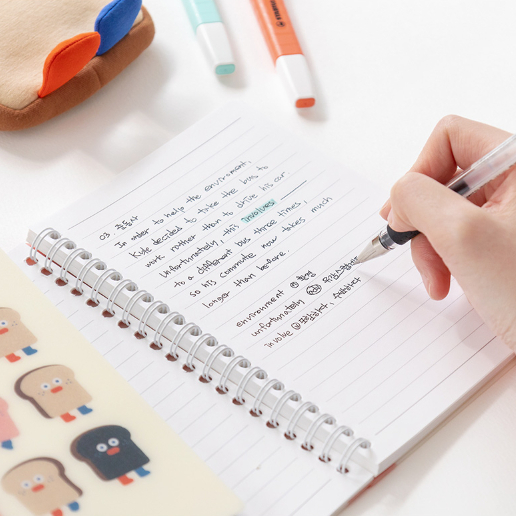 03 동명사
In order to help the enviroment,
Kyle decided to take the bus to
work rather than to drive his car
Unfortunately, this involves
to a different bus three times,
so his commute now takes much
longer than before
environment ⓝ 환경
unfortunately
involve ⓥ 포함하다, 수반하다
STABILO